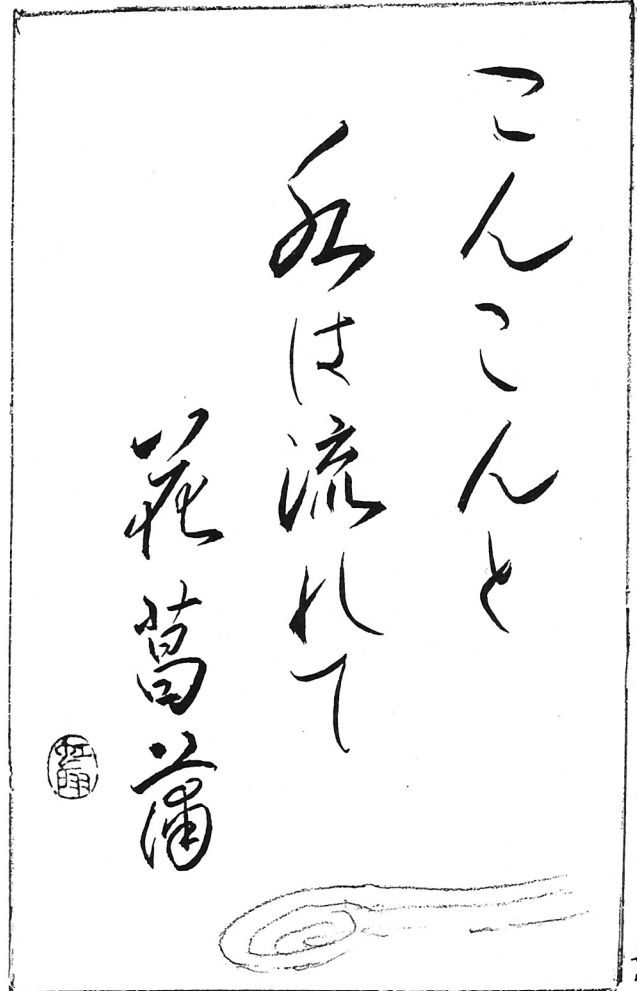 こんこんと
水は流れて
花菖蒲